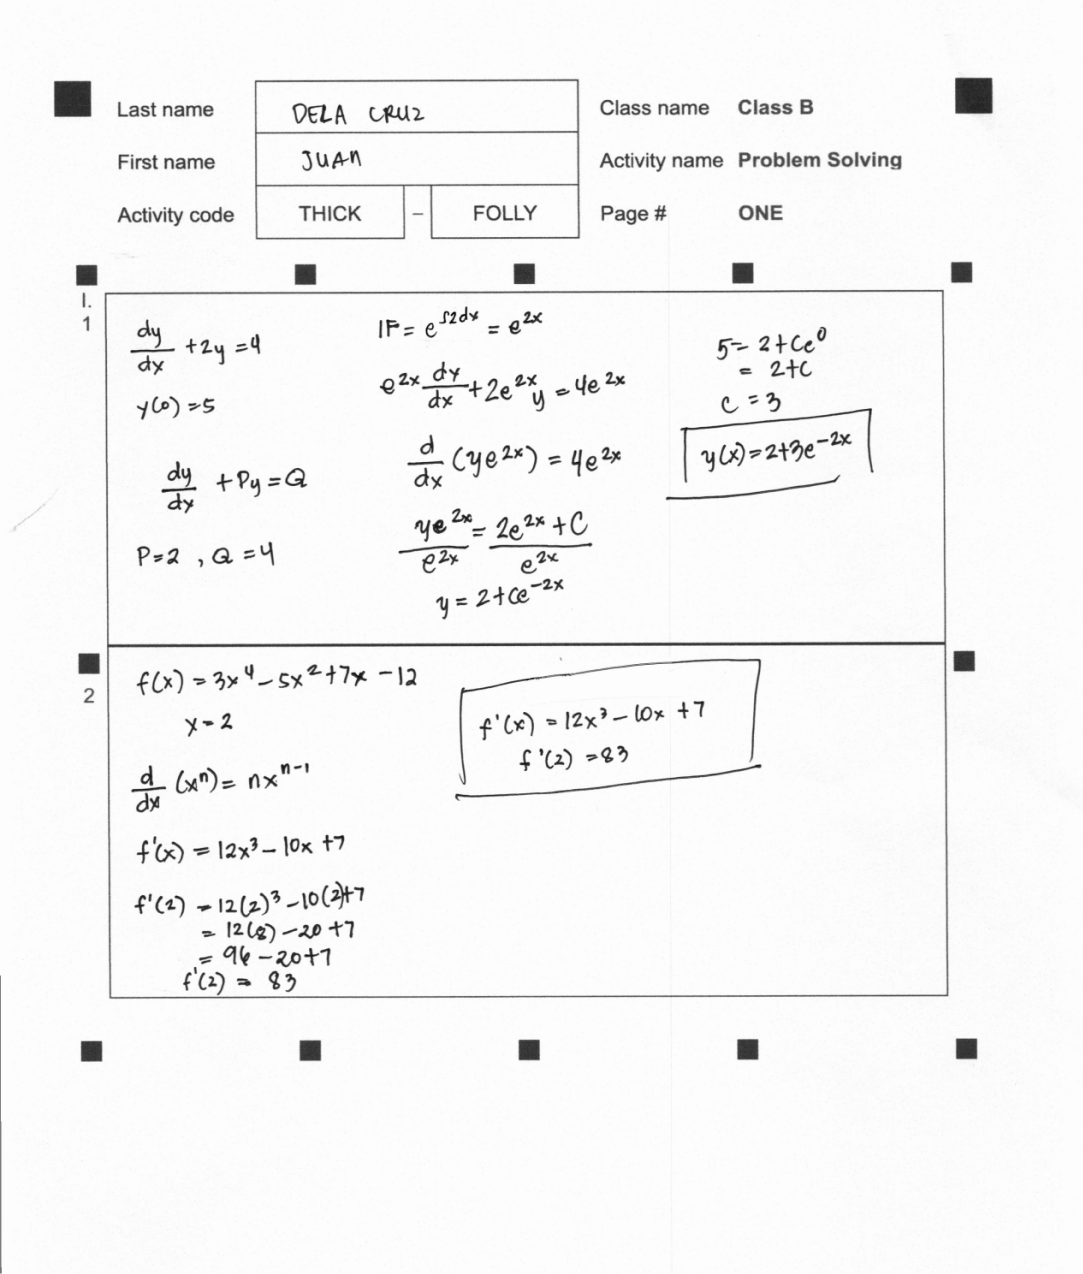 Last name DELA CRUZ Class name Class B
First name JUAN Activity name Problem Solving
Activity code THICK – FOLLY Page # ONE
I.
1
dy/dx + 2y = 4
y(0) = 5
dy/dx + Py = Q
P=2 , Q = 4
IF = e^∫2dx = e^2x
e^2x dy/dx + 2e^2x y = 4e^2x
d/dx (ye^2x) = 4e^2x
ye^2x/e^2x = 2e^2x + C/e^2x
y = 2+Ce^-2x
5 = 2+Ce^0
= 2+C
C = 3
y(x) = 2+3e^-2x
2
f(x) = 3x^4 - 5x^2 + 7x - 12
x = 2
d/dx (x^n) = nx^n-1
f'(x) = 12x^3 - 10x + 7
f'(2) = 12(2)^3 - 10(2)+7
= 12(8) - 20 + 7
= 96 - 20+7
f'(2) = 83
f'(x) = 12x^3 - 10x + 7
f'(2) = 83